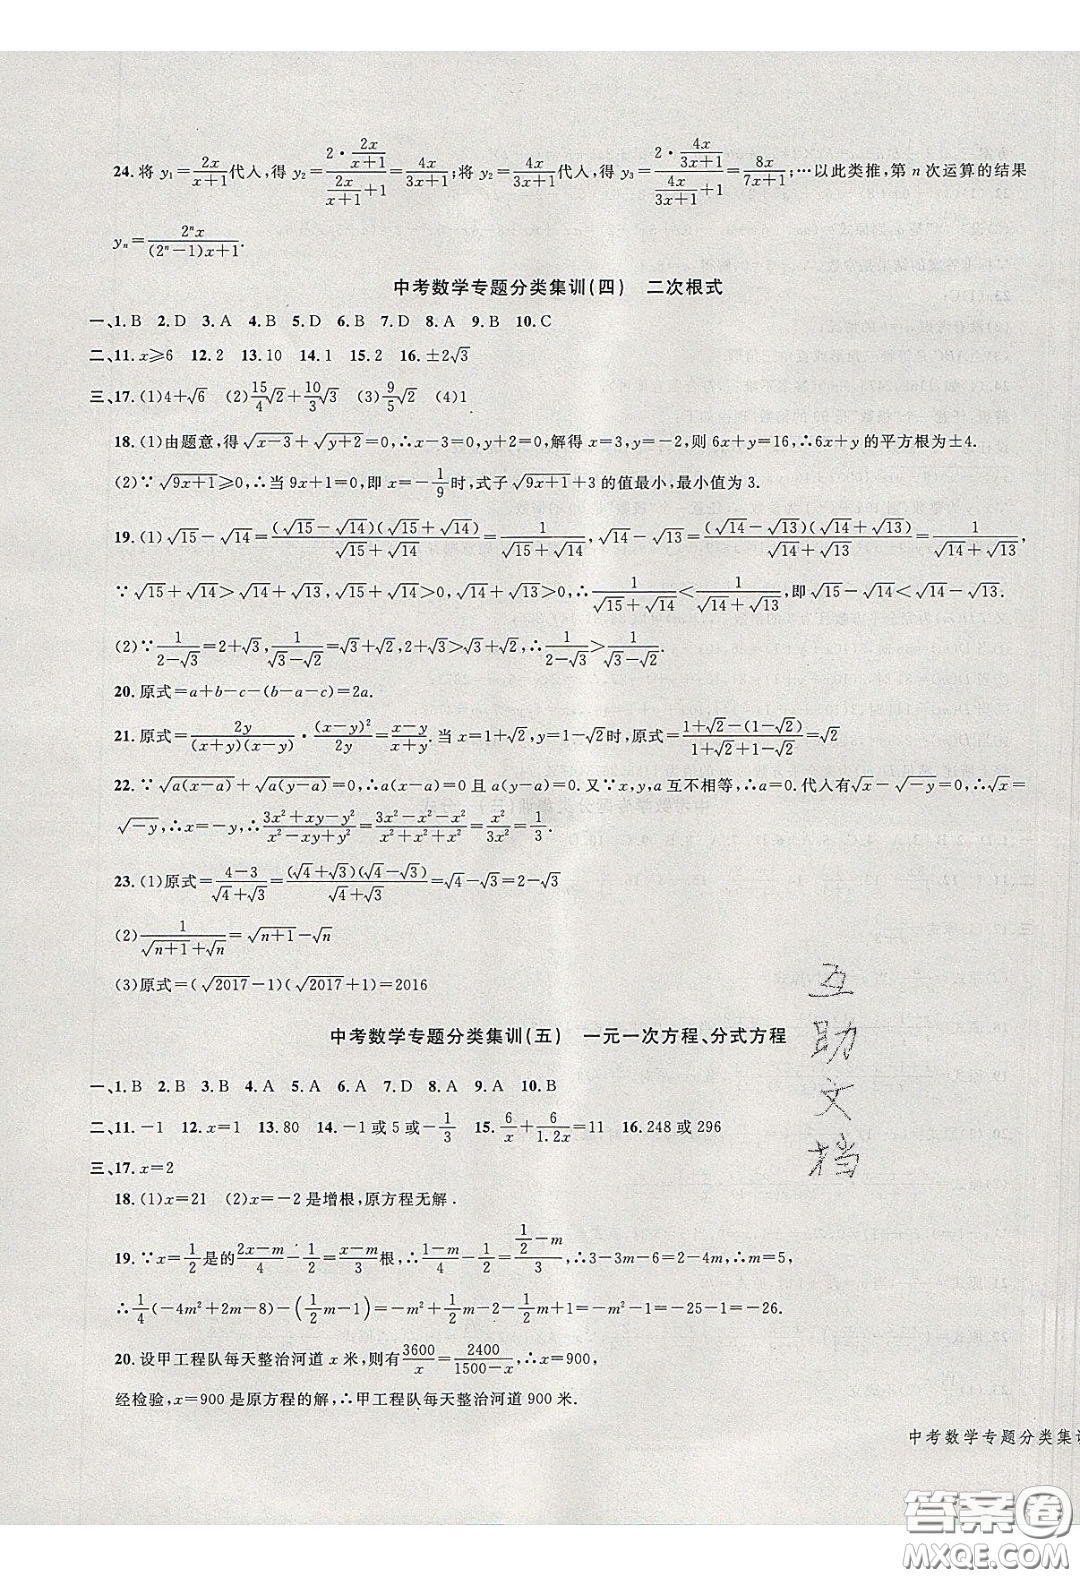 24.将 y₁=2x/(x+1)代入,得 y₂=(2·2x/(x+1))/(2x/(x+1)+1)=4x/(3x+1);将 y₂=4x/(3x+1)代入,得 y₃=(2·4x/(3x+1))/(4x/(3x+1)+1)=8x/(7x+1);…以此类推,第 n 次运算的结果
yₙ=2ⁿx/((2ⁿ−1)x+1).
中考数学专题分类集训(四) 二次根式
一、1.B 2.D 3.A 4.B 5.D 6.B 7.D 8.A 9.B 10.C
二、11.x⩾6 12.2 13.10 14.1 15.2 16.±2√3
三、17.(1)4+√6 (2)15/4√2+10/3√3 (3)9/5√2 (4)1
18.(1)由题意,得√(x−3)+√(y+2)=0,∴x−3=0,y+2=0,解得 x=3,y=−2,则 6x+y=16,∴6x+y 的平方根为±4.
(2)∵√(9x+1)⩾0,∴当 9x+1=0,即 x=−1/9时,式子√(9x+1)+3 的值最小,最小值为 3.
19.(1)√15−√14=(√15−√14)(√15+√14)/(√15+√14)=1/(√15+√14),√14−√13=(√14−√13)(√14+√13)/(√14+√13)=1/(√14+√13),
∵√15+√14>√14+√13,√15+√14>0,√14+√13>0,∴1/(√15+√14)<1/(√14+√13),即√15−√14<√14−√13.
(2)∵1/(2−√3)=2+√3,1/(√3−√2)=√3+√2,2+√3>√3+√2,∴1/(2−√3)>1/(√3−√2).
20.原式=a+b−c−(b−a−c)=2a.
21.原式=2y/((x+y)(x−y))·(x−y)²/2y=(x−y)/(x+y).当 x=1+√2,y=1−√2时,原式=(1+√2−(1−√2))/(1+√2+1−√2)=√2
22.∵√(a(x−a))+√(a(y−a))=0,∴a(x−a)=0 且 a(y−a)=0.又∵x,y,a 互不相等,∴a=0.代入有√x−√−y=0,∴√x=
√−y,∴x=−y,∴(3x²+xy−y²)/(x²−xy+y²)=(3x²−x²−x²)/(x²+x²+x²)=x²/3x²=1/3.
23.(1)原式=(4−3)/(√4+√3)=(√4+√3)(√4−√3)/(√4+√3)=√4−√3=2−√3
(2)1/(√(n+1)+√n)=√(n+1)−√n
(3)原式=(√2017−1)(√2017+1)=2016
中考数学专题分类集训(五) 一元一次方程、分式方程
一、1.B 2.B 3.D 4.A 5.A 6.A 7.D 8.A 9.A 10.B
二、11.−1 12.x=1 13.80 14.−1或5或−1/3 15.6/x+6/1.2x=11 16.248或296
三、17.x=2
18.(1)x=21 (2)x=−2 是增根,原方程无解.
19.∵x=1/2是的(2x−m)/4−1/2=(x−m)/3根,∴(1−m)/4−1/2=(1/2−m)/3,∴3−3m−6=2−4m,∴m=5,
∴1/4(−4m²+2m−8)−(1/2m−1)=−m²+1/2m−2−1/2m+1=−m²−1=−26.
20.设甲工程队每天整治河道 x 米,则有3600/x=2400/(1500−x),∴x=900,
经检验,x=900 是原方程的解,∴甲工程队每天整治河道 900 米.
互助文档
中考数学专题分类集训
答案圈
MXQE.COM